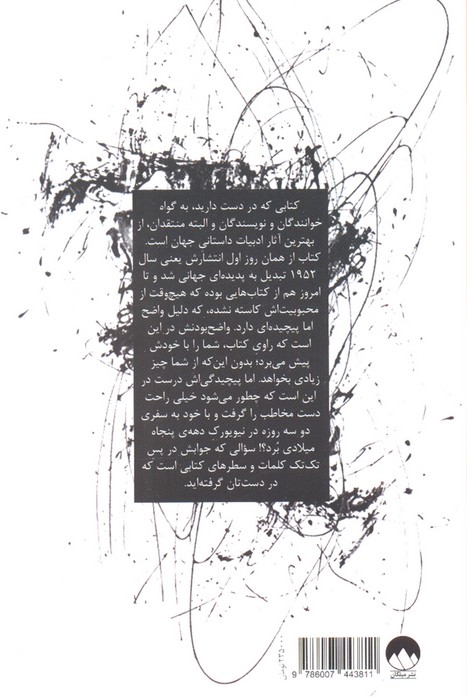 کتابی که در دست دارید، به گواه
خوانندگان و نویسندگان و البته منتقدان، از
بهترین آثار ادبیات داستانی جهان است.
کتاب از همان روز اول انتشارش یعنی سال
۱۹۵۲ تبدیل به پدیده‌ای جهانی شد و تا
امروز هم از کتاب‌هایی بوده که هیچ‌وقت از
محبوبیت‌اش کاسته نشده، که دلیل واضح
اما پیچیده‌ای دارد. واضح‌بودنش در این
است که راوی کتاب، شما را با خودش
پیش می‌برد؛ بدون این‌که از شما چیز
زیادی بخواهد. اما پیچیدگی‌اش درست در
این است که چطور می‌شود خیلی راحت
دست مخاطب را گرفت و با خود به سفری
دو سه روزه در نیویورک دهه‌ی پنجاه
میلادی بُرد؟! سؤالی که جوابش در پسِ
تک‌تک کلمات و سطرهای کتابی است که
در دست‌تان گرفته‌اید.
تومان
9 786007 443811
نشر میلکان